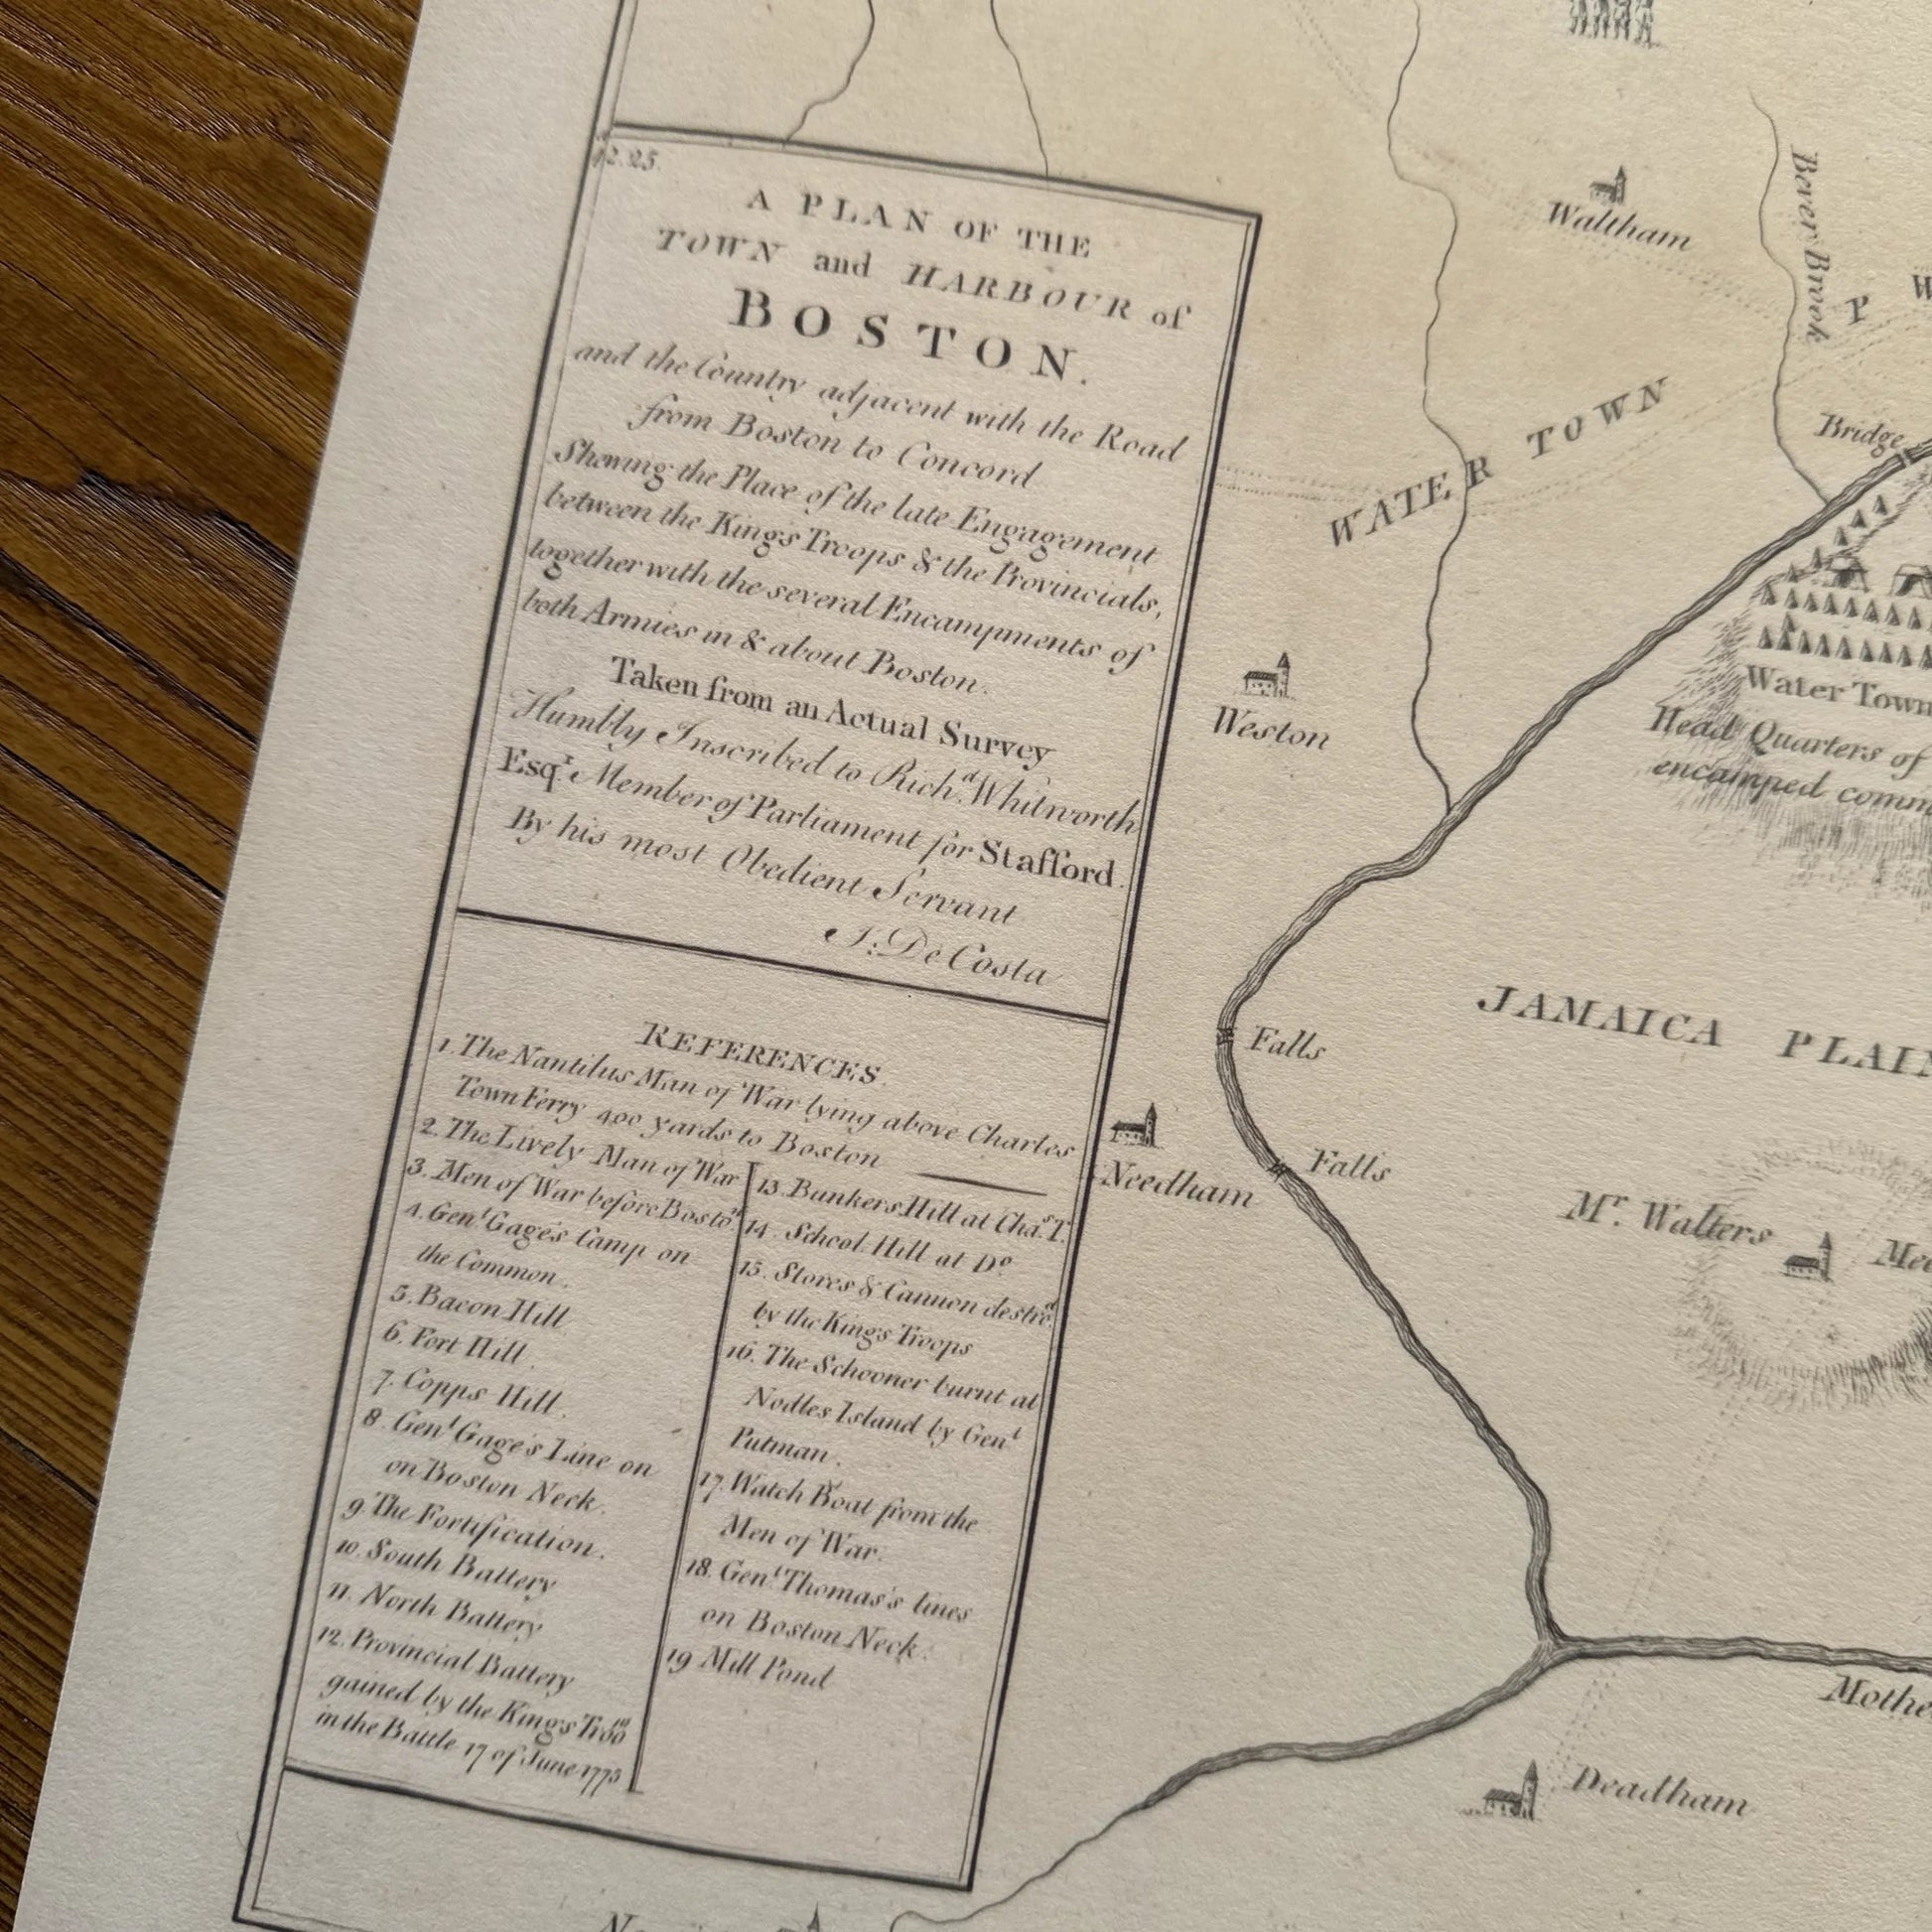 42.25.
A PLAN OF THE
TOWN and HARBOUR of
BOSTON.
and the Country adjacent with the Road
from Boston to Concord
Shewing the Place of the late Engagement
between the King's Troops & the Provincials,
together with the several Encampments of
both Armies in & about Boston.
Taken from an Actual Survey
Humbly Inscribed to Richd. Whitworth
Esqr. Member of Parliament for Stafford.
By his most Obedient Servant
I: De Costa
REFERENCES.
1. The Nantilus Man of War lying above Charles
Town Ferry 400 yards to Boston
2. The Lively Man of War
3. Men of War before Boston
4. Genl Gage's Camp on
the Common.
5. Bacon Hill
6. Fort Hill.
7. Copps Hill.
8. Genl Gage's Line on
on Boston Neck.
9 The Fortification.
10. South Battery
11. North Battery
12. Provincial Battery
gained by the King's Troops
in the Battle 17 of June 1775
13. Bunkers Hill at Chas. T.
14. School Hill at Do.
15. Stores & Cannon destrod.
by the King's Troops
16. The Schooner burnt at
Nodles Island by Genl
Putman.
17. Watch Boat from the
Men of War.
18. Genl Thomas's lines
on Boston Neck.
19 Mill Pond
Waltham
Bever Brook
P
W
WATER TOWN
Bridge
Weston
Water Town
Head Quarters of
encamped
Falls
JAMAICA PLAIN
Needham
Falls
Mr. Walters
Deadham